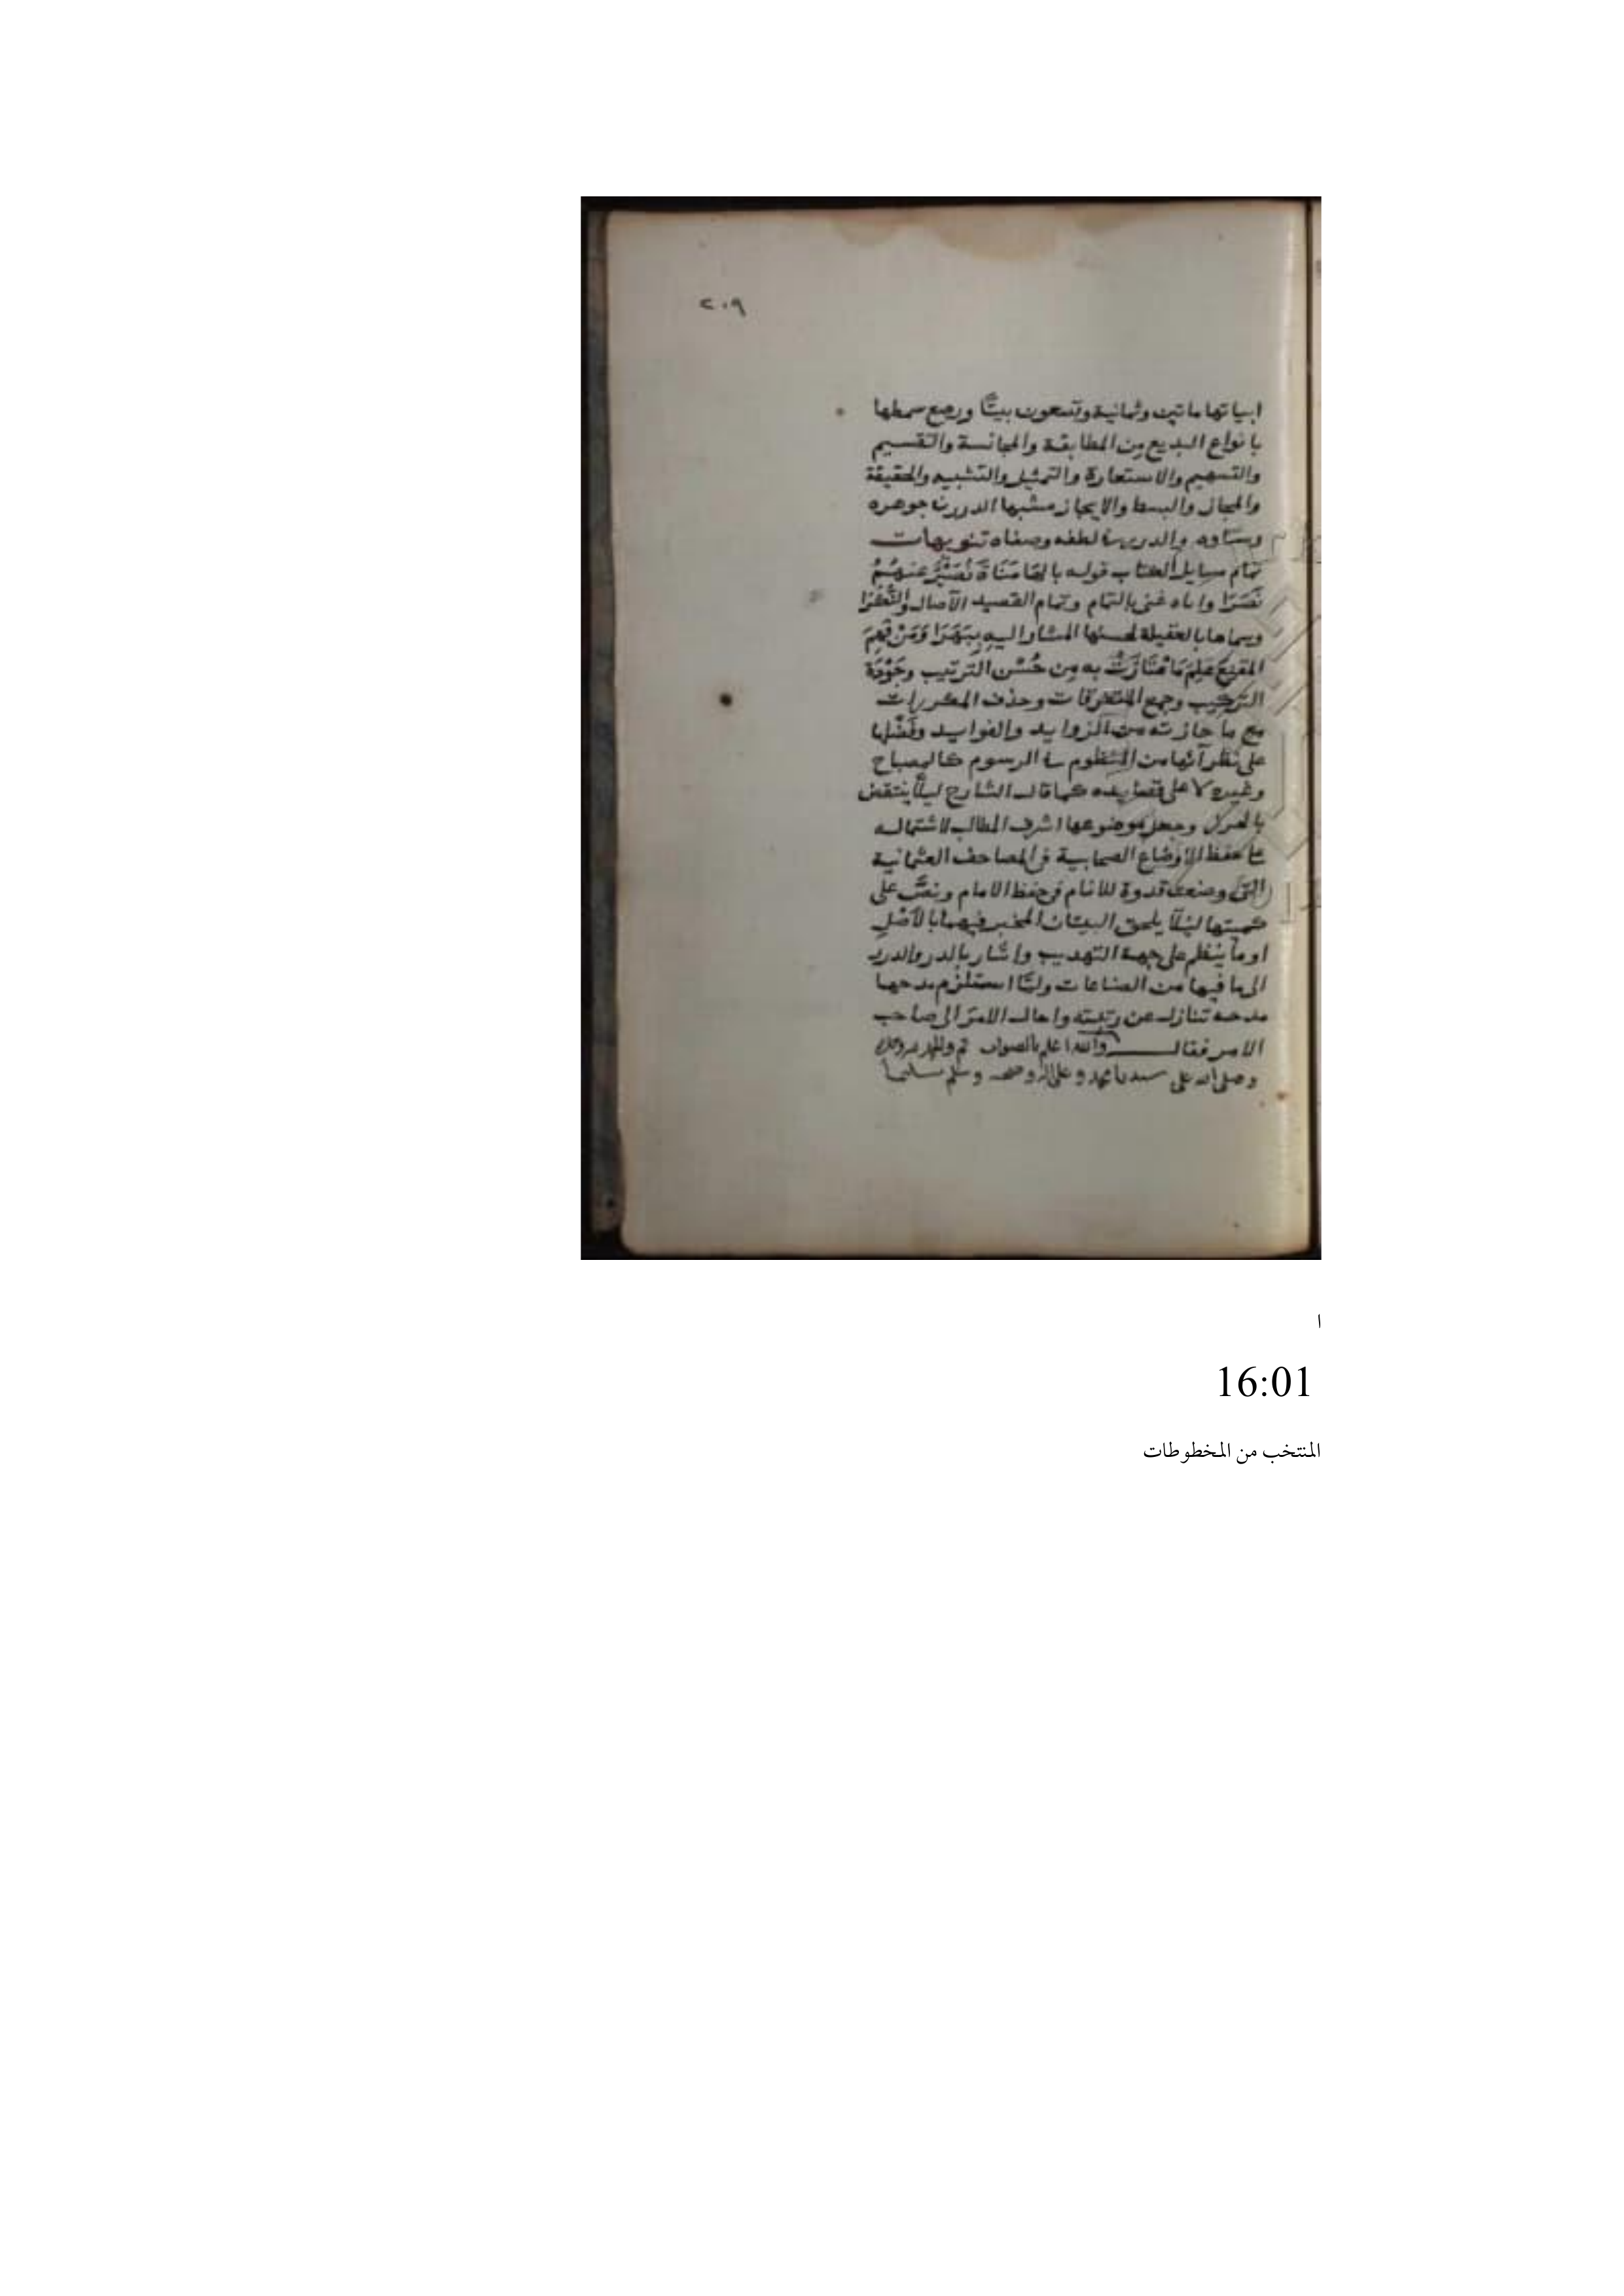 ٢٠٩
ابياتها ماتين وثمانية وتسعون بيتًا ورصع سمطها
بانواع البديع من المطابقة والمجانسة والتقسيم
والتسهيم والاستعارة والتمثيل والتشبيه والحقيقة
والمجاز والبسط والايجاز مشبها الدرر جوهره
والدر لطفه وصفاه تنويهات
تمام مسايل الكتاب قوله
نصرا واياه عنى بالتمام وتمام القصيد الآصال
وسماها بالعقيلة لحسنها المشار اليه ببهرا ومن فهم
المقنع علم ما به من حُسْن الترتيب وجَوْدَة
التركيب وجمع المتفرقات وحذف المكررات
مع ما حازته من الزوايد والفوايد وفضلها
على نظرآئها من المنظوم في الرسوم كالمصباح
وغيره لا على قصايده كما قال الشارح ليلّا ينتقض
بالحرز وجعل موضوعها اشرف المطالب لاشتماله
على حفظ الاوضاع الصحابية في المصاحف العثمانية
التى وضعت قدوة للانام في حفظ الامام ونصّ على
كميتها ليلّا يلحق البيتان المخبر فيهما بالأصل
او ما ينظم على جهة التهذيب واشار بالدر والدرر
الى ما فيها من الصناعات ولمّا استلزم مدحها
مدحه تنازل عن رتبته واحال الامر الى صاحب
الامر فقال والله اعلم بالصواب تم والحمد لله وحده
وصلى الله على سيدنا محمد وعلى اله وصحبه وسلم تسليما
ا
16:01
المنتخب من المخطوطات